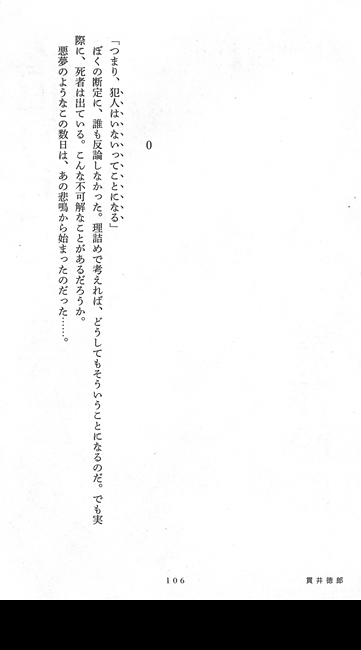 0
「つまり、犯人はいないってことになる」
ぼくの断定に、誰も反論しなかった。理詰めで考えれば、どうしてもそういうことになるのだ。でも実
際に、死者は出ている。こんな不可解なことがあるだろうか。
悪夢のようなこの数日は、あの悲鳴から始まったのだった……。
106
貫井徳郎